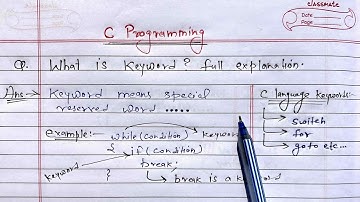 classmate
Date
Page
C Programming
Q. What is keyword? full explanation.
Ans → Keyword means special
reserved word .....
example:- while(condition) → keyword
{ if(condition)
keyword
break;
} → break is a keyword
C language keywords:-
→ switch
→ for
→ goto etc...